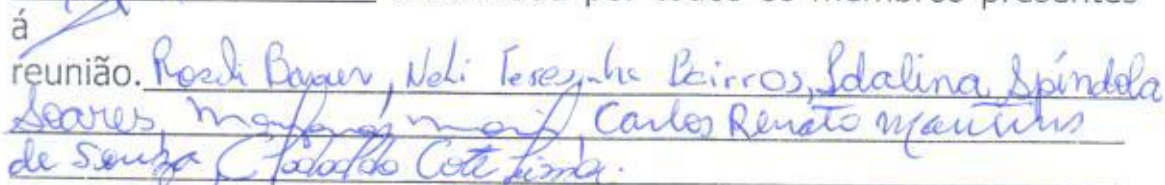 por todos os membros presentes
á
reunião. Roseli Bauer, Neli Teresinha Bairros, Idalina Spíndola
Soares, Carlos Renato Martins
de Souza Cote Lima.